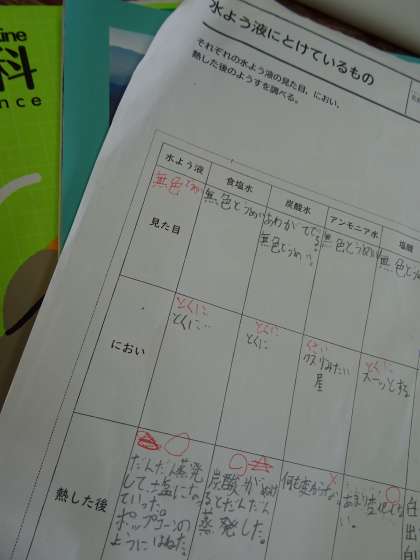 科
ence
水よう液にとけているもの
それぞれの水よう液の見た目、におい、
熱した後のようすを調べる。
水よう液
食塩水
炭酸水
アンモニア水
塩酸
見た目
無色とうめい
無色とうめい
あわがでている
無色とうめい。
無色とうめい
無色とうめ
におい
とくに
とくに…
とくに
とくに
くさい
スーッとする
熱した後
だんだん蒸発
して塩にな
っていった。
ポップコーンの
ようにはねた。
炭酸がぬけ
るとだんだん
蒸発した。
何も変わらない
あまり変化してな
い。